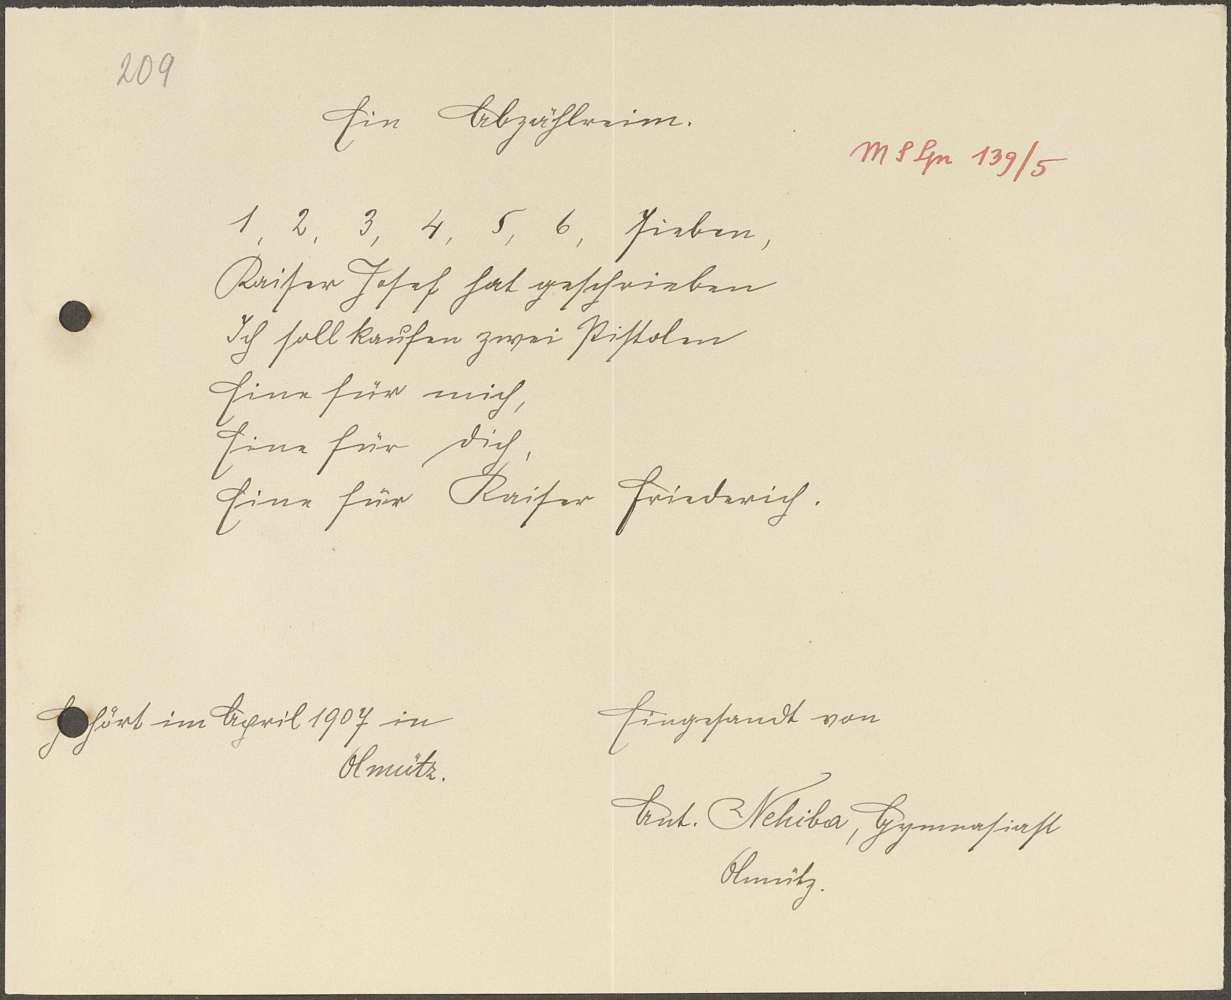 209
Ein Abzählreim.
1, 2, 3, 4, 5, 6, Sieben,
Kaiser Josef hat geschrieben
Ich soll kaufen zwei Pistolen
Eine für mich,
Eine für dich,
Eine für Kaiser Friederich.
Gehört im April 1907 in
Olmütz.
Eingesandt von
Ant. Nehiba, Gymnasiast
Olmütz.
139/5